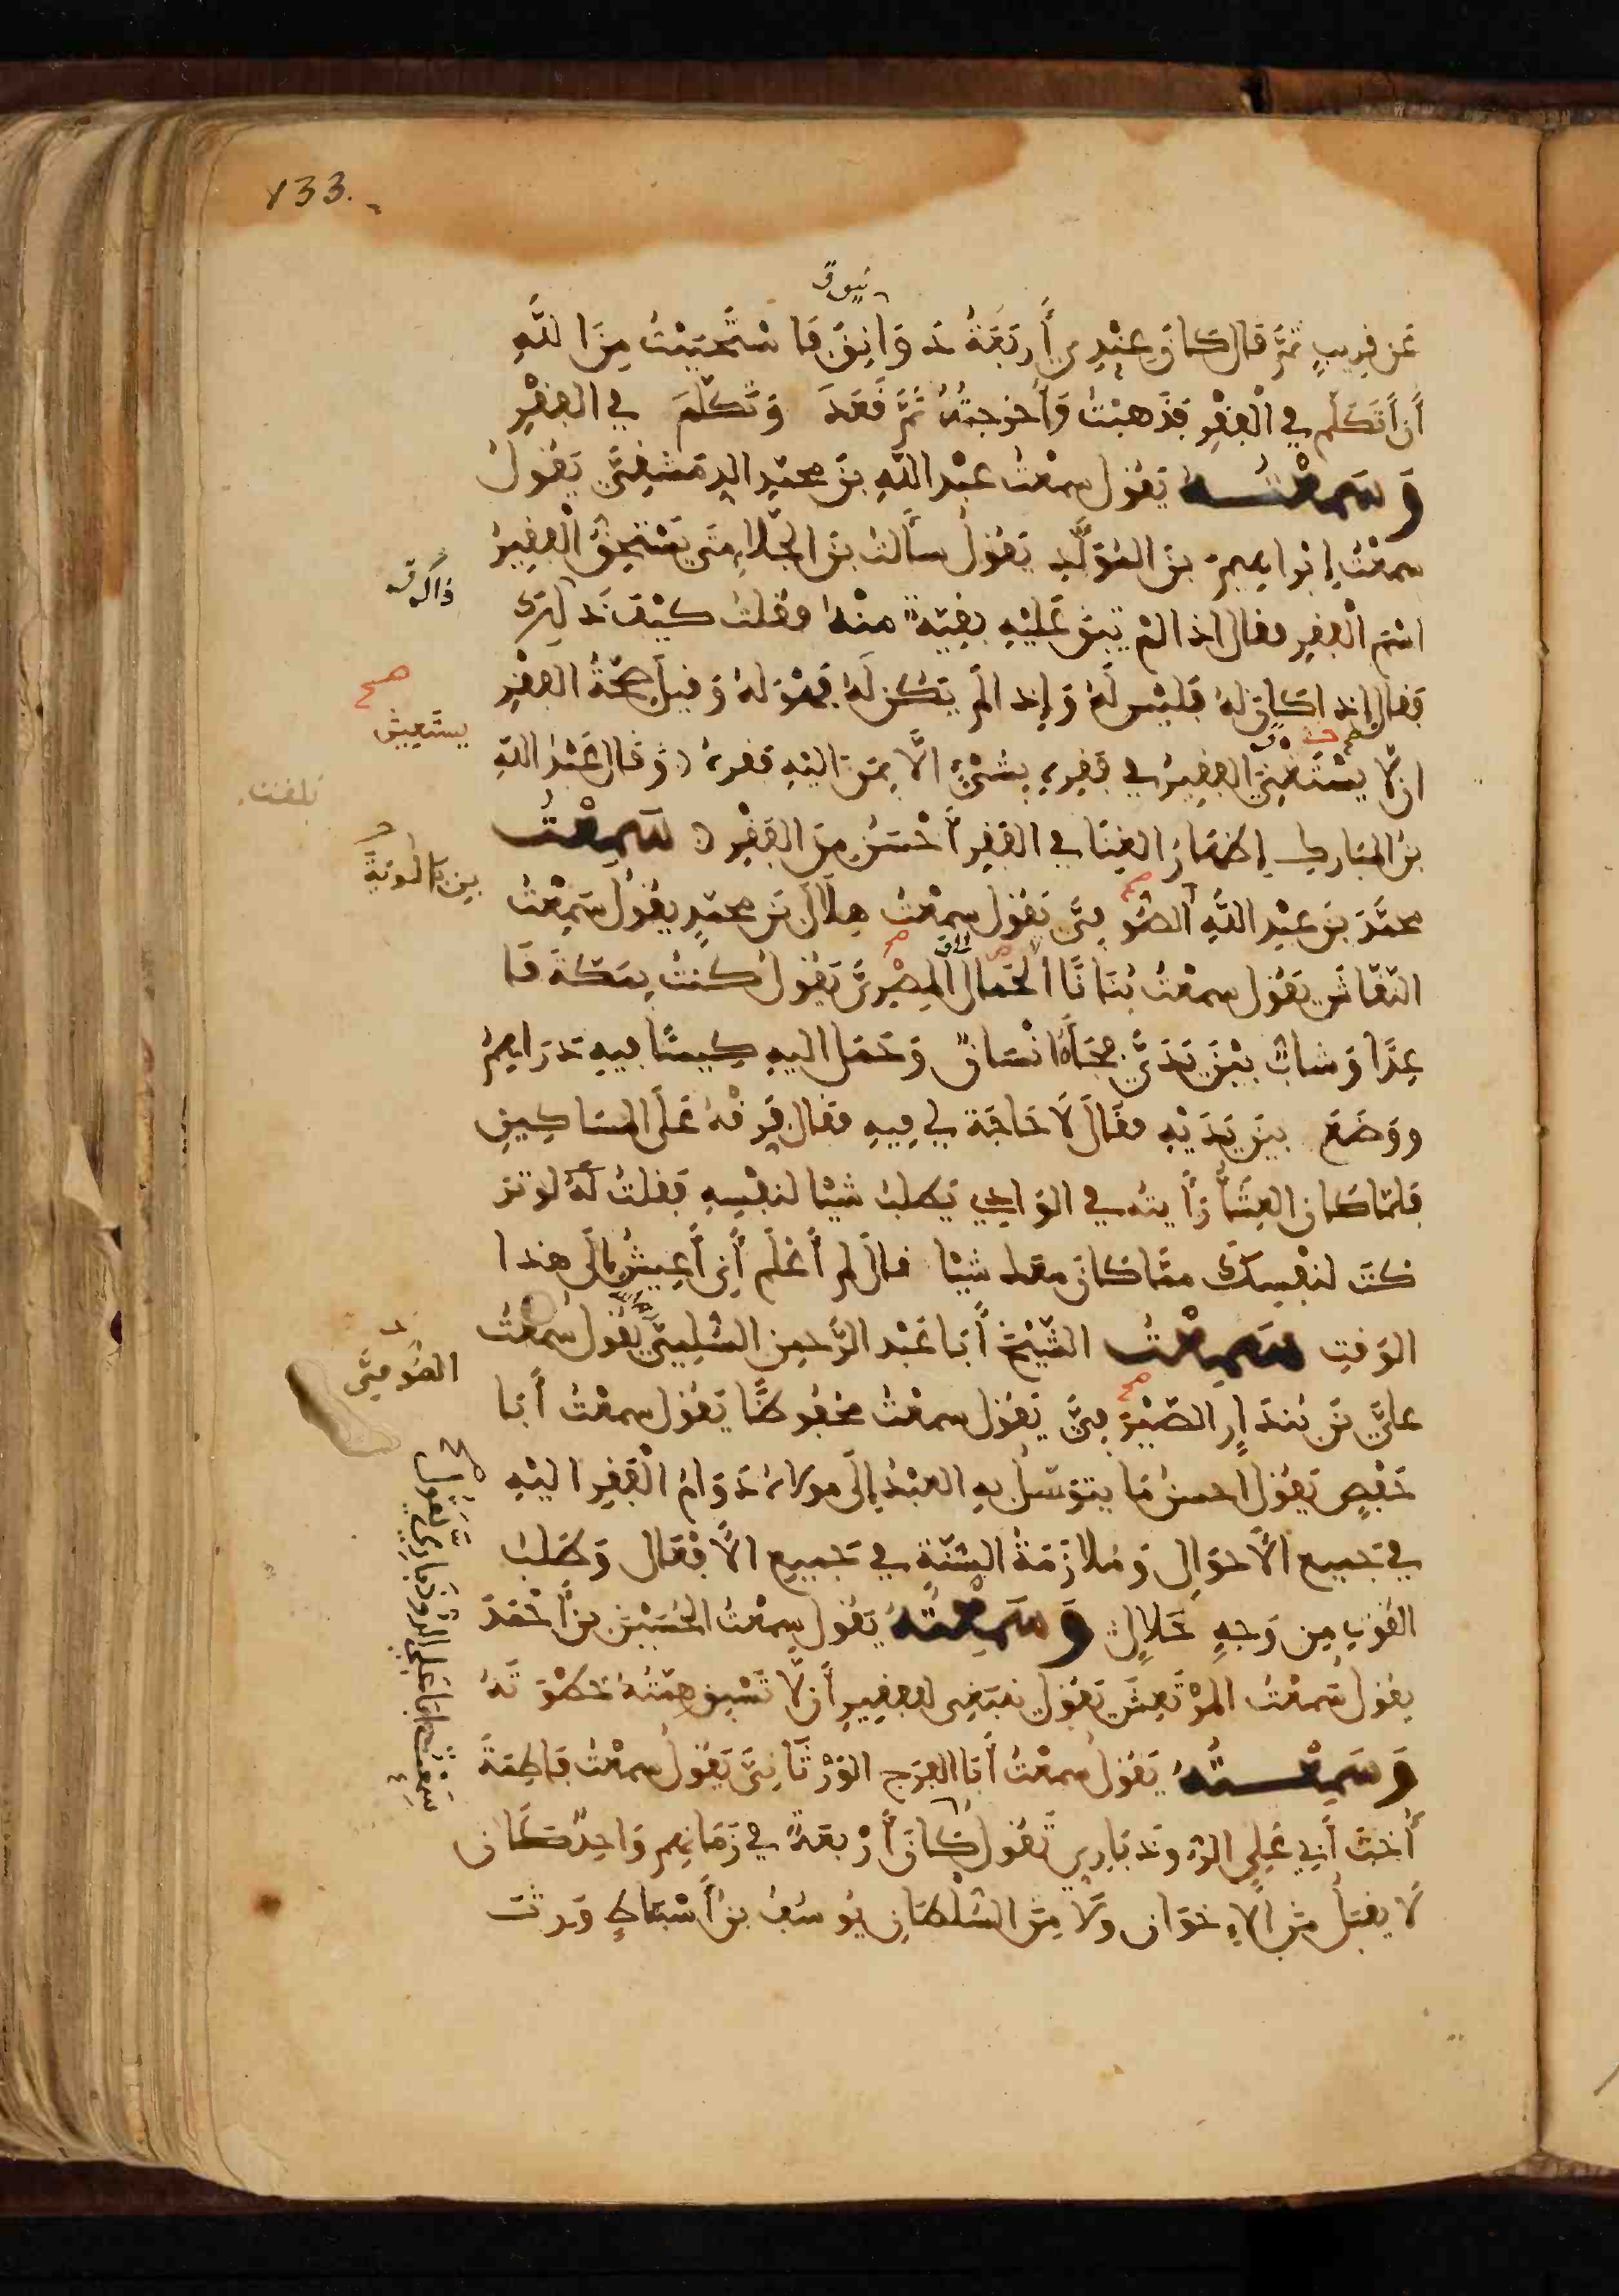 133.
نيوق
عَن قريبٍ ثمَّ قال كان عِنْدِي أَربَعَةُ دَوَانِق فاستَحيَيْتُ مِنَ اللَّهِ
أن أَتَكلَّم في الْفَقْرِ فذَهبْتُ وأخرجتُهُ ثُمَّ قَعَدَ وَتَكلَّمَ في الفقْرِ
وَسَمِعْتُهُ يَقول سمعْتُ عبْد اللَّهِ بنَ محمّدٍ الدِّمَشقِيَّ يَقُولُ
سمعْتُ إبْراهيمَ بنَ المُوَلَّدِ يَقولُ سألتُ بنَ الجَلّاءِ متَى يَسْتَحِقُّ الْفقِيرُ
اسْم الْفقرِ فقال إذا لم تبقَ عَلَيْهِ بقيّةٌ منْهُ فقلتُ كَيْفَ ذَلِكَ
فقال إذا كان لهُ فليْس لَهُ وَإذا لَم يَكُن لَهُ فَهْوَ لهُ وَقيلَ صِحّةُ الفقْرِ
ان لّا يسْتَغْنِيَ الفقيرُ في فَقرِهِ بشَيْءٍ الَّا بمَن اليْهِ فقرهُ وَقال عَبْدُ اللَّهِ
بنُ المُبَارك إظهَارُ الغِنَا في الفَقرِ أحْسَنُ مِنَ الفَقْرِ سَمِعْتُ
محمَّدَ بنَ عبْدِ اللَّهِ الصُّوفيَّ يَقول سمعْتُ هِلَالَ بنَ محمّدٍ يقولُ سَمِعْتُ
النّقّاشَ يَقول سمعْتُ بُنَانًا الحَمال المِصْرِيَّ يَقولُ كنتُ بِمَكّةَ قَا
عِدًا وَشابٌّ بيْنَ يَدَيَّ فجَاءَهُ انْسَانٌ وَحَمَل اليهِ كِيسًا فِيهِ دَرَاهِمُ
ووَضَعَ بيْنَ يَدَيْهِ فقَالَ لَا حَاجَة لي فِيهِ فقال فَرِّقْهُ عَلَى المسَاكينِ
فلمّا كان العِشَاءُ رَأيتهُ في الوَادِي يَطلبُ شيْئا لنفْسِهِ فقلتُ لَهُ لو تر
كتَ لنفْسِكَ ممّا كانَ معَك شيْئا قال لم أَعْلَم أَنِي أَعِيشُ إلى هذا
الوَقتِ سَمِعْتُ الشّيْخَ أبَا عَبْد الرَّحمن السُّلَمِيّ يقُول سَمعْتُ
عليَّ بنَ بُندَارٍ الصَّيْرَفيَّ يَقول سمعْتُ محفُوظًا يَقول سمعْتُ أبَا
حَفْصٍ يَقول أحسنُ مَا يتوَسَّلُ بهِ العبْدُ إلَى مولاهُ دَوَامُ الفَقرِ اليْهِ
في جَميع الأحوَالِ وَمُلازَمَةُ السُّنَّةِ في جَميعِ الأفْعَال وَطَلبُ
القُوتِ مِن وَجهٍ حَلالٍ وَسَمِعْتُهُ يَقول سمعْتُ الحُسَيْنَ بنَ أحْمَدَ
يقول سَمعْتُ المُرْتَعِشَ يَقول ينبَغي للفقيرِ أن لَّا تَسْبِق همّتُهُ خطْوَتَهُ
وَسَمِعْتُهُ يَقولُ سمعْتُ أبَا الفَرَج الوَرْثَانِيَّ يَقولُ سمعْتُ فَاطِمَةَ
أُختَ أَبي عَلي الرّوذبَاريِّ تَقولُ كانَ أرْبعَةٌ في زَمَانهِم وَاحدٌ كَان
لَا يقبَلُ مِنَ الإخوَان وَلَا مِنَ السُّلْطَانِ يُوسُفُ بنُ أَسْبَاطٍ وَرثَ
ذاك
صح
يستعين
بلغت
الصوفيّ
سَمِعْتُ أبا عَلي الروذبَارِيّ يَقُول